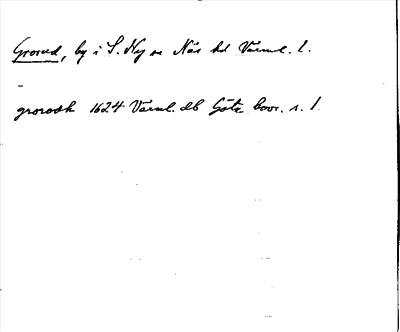 Grorud, by i S. Ny sn Näs hd Värml. l.
grorodh 1624 Värml. db Göta hovr. s. 1